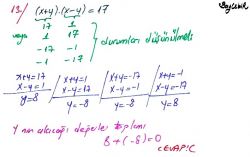 13/ (x+y).(x-y)=17
17 1
veya 1 17
-17 -1
-1 -17
durumları düşünülmeli
x+y=17 x+y=1 x+y=-17 x+y=-1
x-y=1 x-y=17 x-y=-1 x-y=-17
y=8 y=-8 y=-8 y=8
y nin alacağı değerler toplamı
8+(-8)=0
CEVAP:C